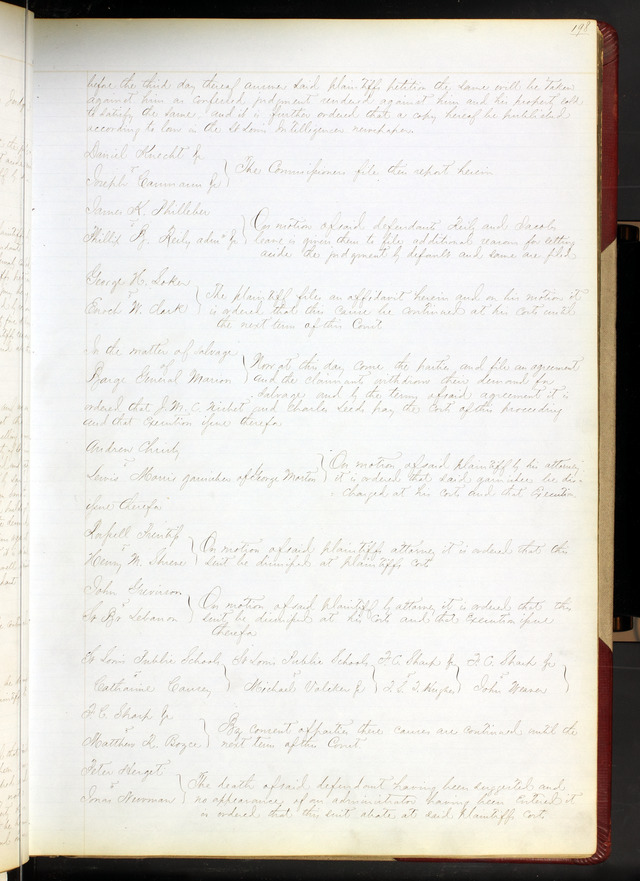 198
before the third day thereof answer said plaintiffs petition the same will be taken
against him as confessed judgment rendered against him and his property sold
to satisfy the same and it is further ordered that a copy hereof be published
according to law in the St Louis Intelligencer newspaper
Daniel Knecht Jr
vs
Joseph Jr
The Commissioners file their report herein
James K.
vs
Phillip B. Keily admr Jr
On motion of said defendants Keily and Jacobs
leave is given them to file additional reasons for setting
aside the judgment by default and same are filed
George H. Loker
vs
Enoch W. Clark
The plaintiff files an affidavit herein and on his motion it
is ordered that this cause be continued at his costs until
the next term of this Court
In the matter of salvage
of
Barge General Marion
Now at this day come the parties and file an agreement
and the claimants withdraw their demand for
salvage and by the terms of said agreement it is
ordered that J. M. C. and Charles Leeds pay the costs of this proceeding
and that Execution issue therefor
Andrew Christy
vs
Lewis Morris garnishee of George Morton
On motion of said plaintiff by his attorney
it is ordered that said garnishee be dis-
charged at his costs and that Execution
issue therefor
Russell
vs
Henry M. Shreve
On motion of said plaintiffs attorney it is ordered that this
suit be dismissed at plaintiffs costs
John
vs
St Bt Lebanon
On motion of said plaintiff by attorney it is ordered that this
suit be dismissed at his costs and that Execution issue
therefor
St Louis Public Schools
vs
Catharine
St Louis Public Schools
vs
Michael Jr
F. C. Sharp Jr
vs
F. C. Sharp Jr
vs
John Weaver
F. C. Sharp Jr
vs
Matthew K. Boyce
By consent of parties these causes are continued until the
next term of this Court
Peter
vs
Jonas Newman
The death of said defendant having been suggested and
no appearance of an administrator having been entered it
is ordered that this suit abate at said plaintiffs costs